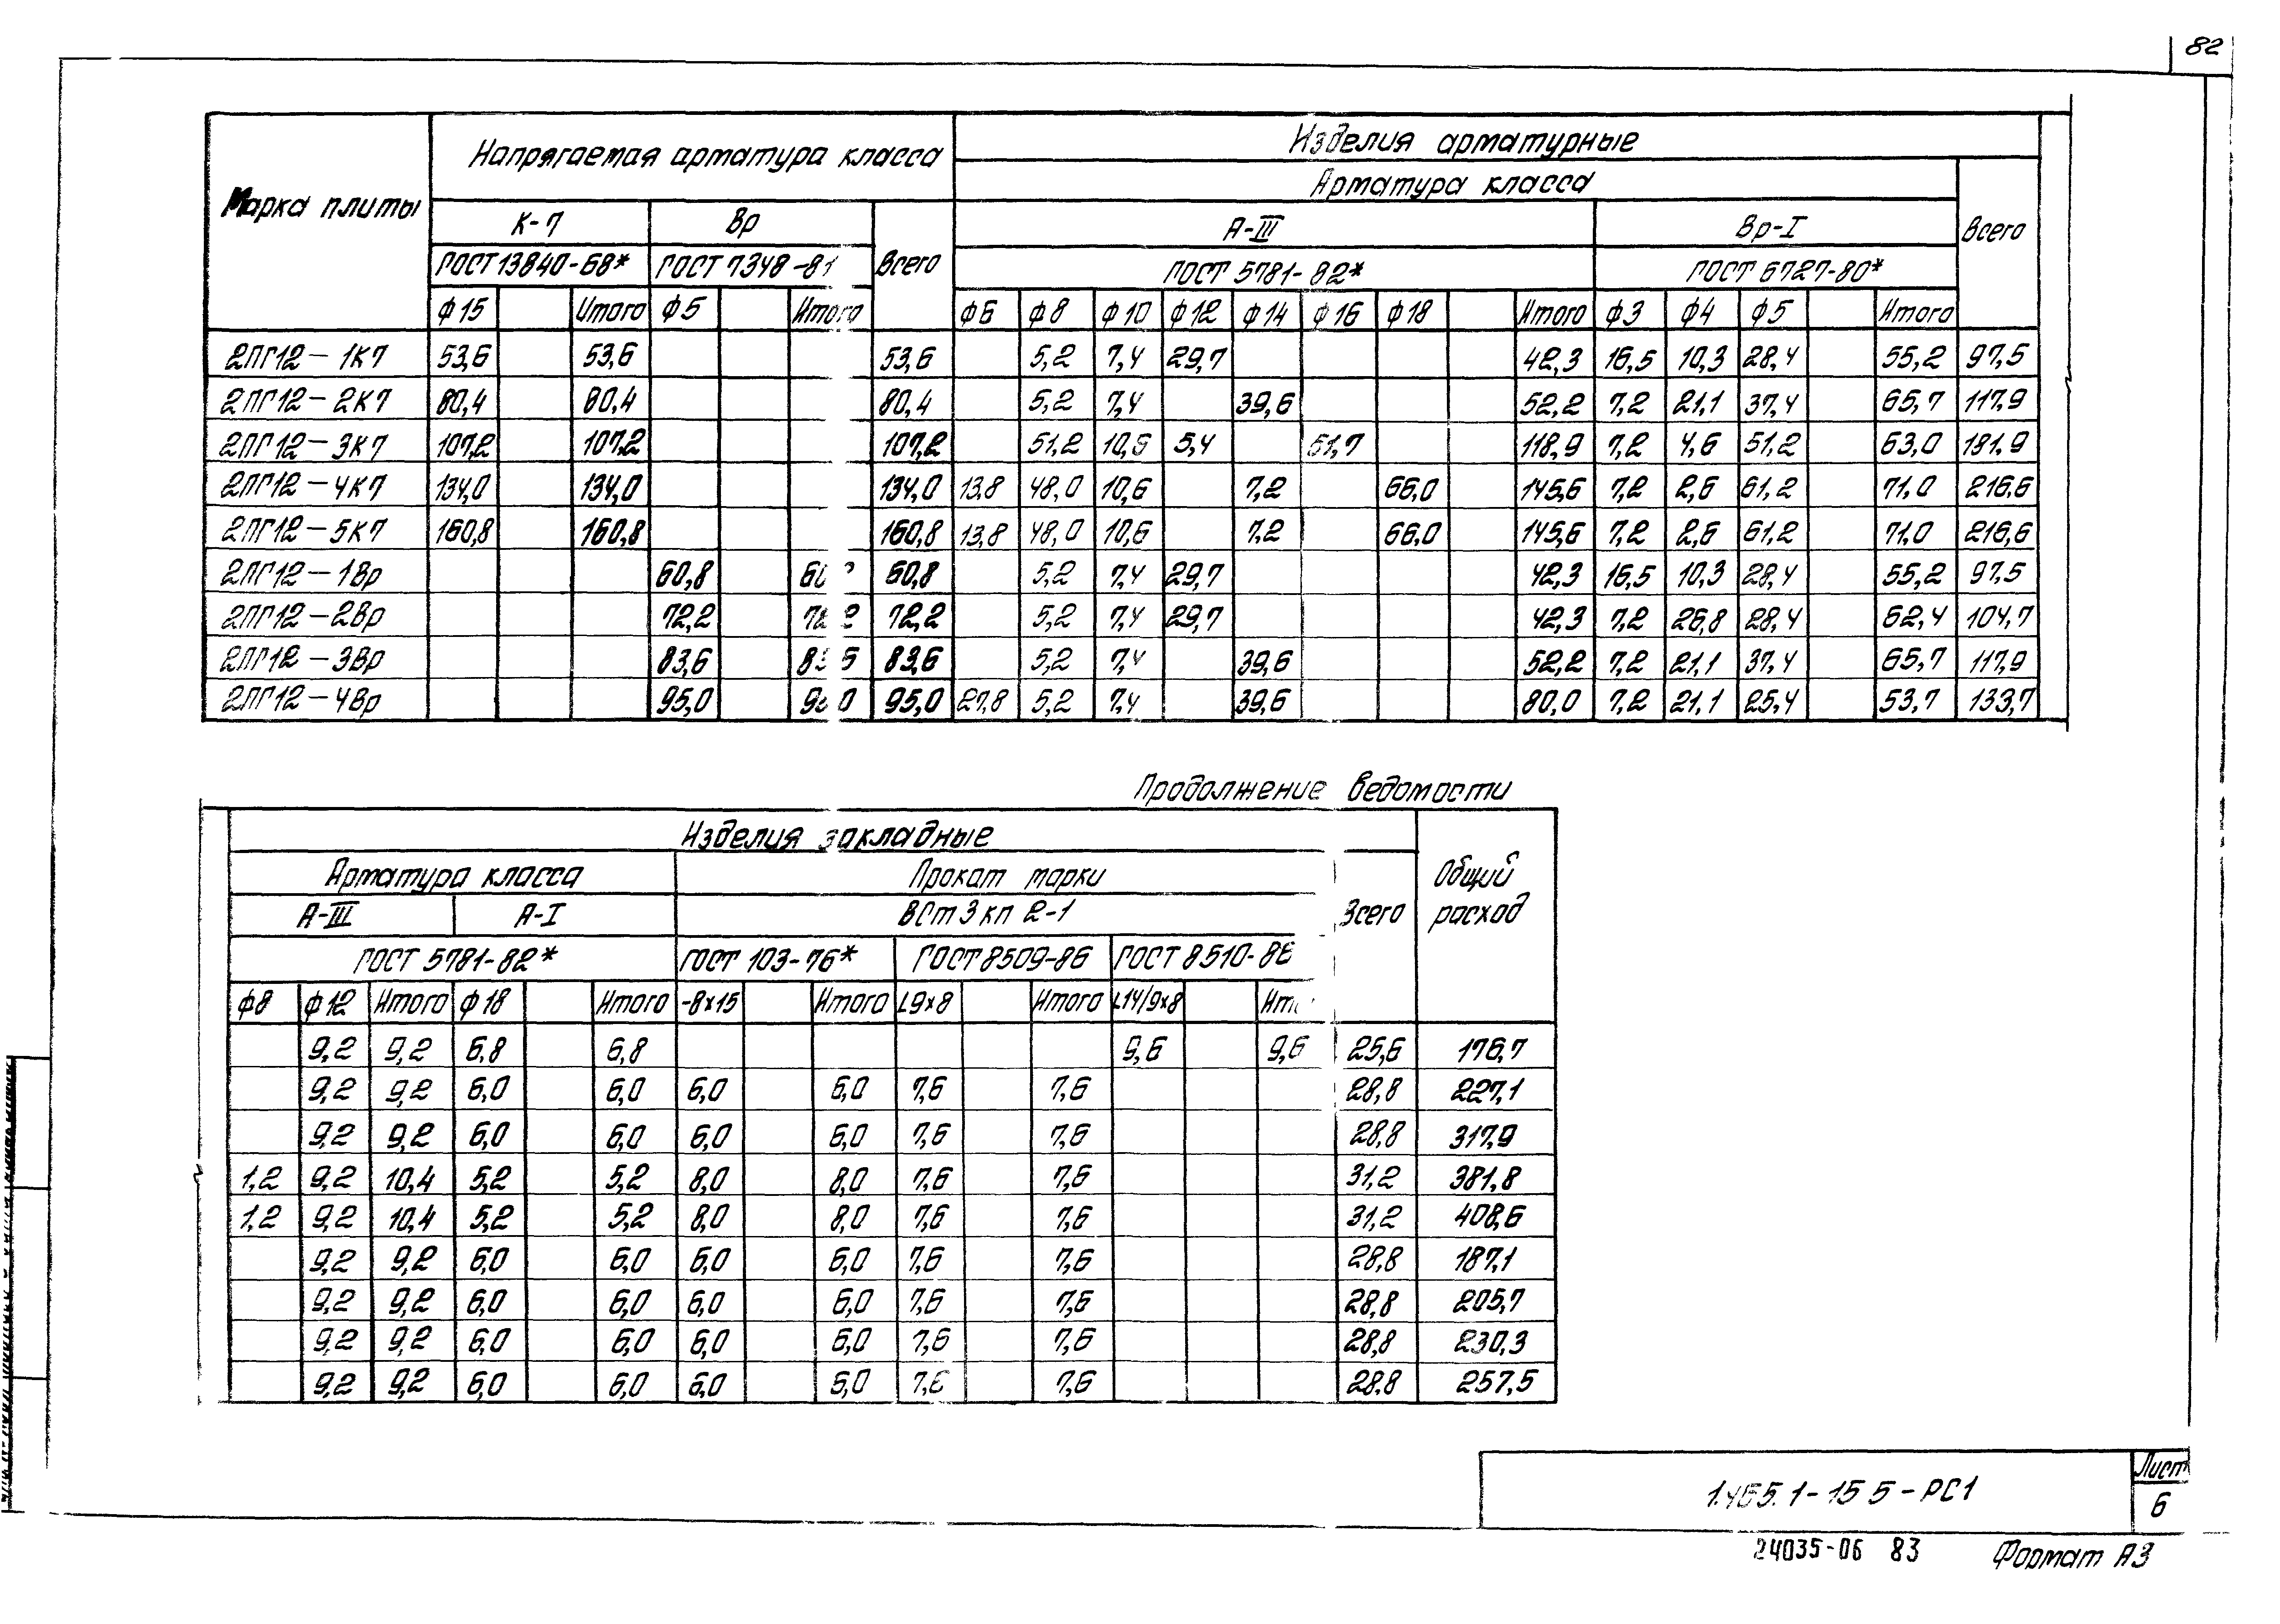 82
Напрягаемая арматура класса Изделия арматурные
Марка плиты Арматура класса
К-7 Вр Всего А-III Вр-I Всего
ГОСТ 13840-68* ГОСТ 7348-81 ГОСТ 5781-82* ГОСТ 6727-80*
Ф15 Итого Ф5 Итого Ф6 Ф8 Ф10 Ф12 Ф14 Ф16 Ф18 Итого Ф3 Ф4 Ф5 Итого
2ПГ12-1К7 53,6 53,6 53,6 5,2 7,4 29,7 42,3 16,5 10,3 28,4 55,2 97,5
2ПГ12-2К7 80,4 80,4 80,4 5,2 7,4 39,6 52,2 7,2 21,1 37,4 65,7 117,9
2ПГ12-3К7 107,2 107,2 107,2 51,2 10,6 5,4 51,7 118,9 7,2 4,6 51,2 63,0 181,9
2ПГ12-4К7 134,0 134,0 134,0 13,8 48,0 10,6 7,2 66,0 145,6 7,2 2,6 61,2 71,0 216,6
2ПГ12-5К7 160,8 160,8 160,8 13,8 48,0 10,6 7,2 66,0 145,6 7,2 2,6 61,2 71,0 216,6
2ПГ12-1Вр 60,8 60,8 5,2 7,4 29,7 42,3 16,5 10,3 28,4 55,2 97,5
2ПГ12-2Вр 72,2 72,2 72,2 5,2 7,4 29,7 42,3 7,2 26,8 28,4 62,4 104,7
2ПГ12-3Вр 83,6 83,6 83,6 5,2 7,4 39,6 52,2 7,2 21,1 37,4 65,7 117,9
2ПГ12-4Вр 95,0 95,0 95,0 27,8 5,2 7,4 39,6 80,0 7,2 21,1 25,4 53,7 133,7
Продолжение ведомости
Изделия закладные Общий расход
Арматура класса Прокат марки Всего
А-III А-I ВСт3кп 2-1
ГОСТ 5781-82* ГОСТ 103-76* ГОСТ 8509-86 ГОСТ 8510-86
Ф8 Ф12 Итого Ф18 Итого -8х15 Итого L9х8 Итого L14/9х8
9,2 9,2 6,8 6,8 9,6 9,6 25,6 176,7
9,2 9,2 6,0 6,0 6,0 6,0 7,6 7,6 28,8 227,1
9,2 9,2 6,0 6,0 6,0 6,0 7,6 7,6 28,8 317,9
1,2 9,2 10,4 5,2 5,2 8,0 8,0 7,6 7,6 31,2 381,8
1,2 9,2 10,4 5,2 5,2 8,0 8,0 7,6 7,6 31,2 408,6
9,2 9,2 6,0 6,0 6,0 6,0 7,6 7,6 28,8 187,1
9,2 9,2 6,0 6,0 6,0 6,0 7,6 7,6 28,8 205,7
9,2 9,2 6,0 6,0 6,0 6,0 7,6 7,6 28,8 230,3
9,2 9,2 6,0 6,0 6,0 6,0 7,6 7,6 28,8 257,5
1.465.1-15 5-РС1
Лист
6
24035-06 83
Формат А3